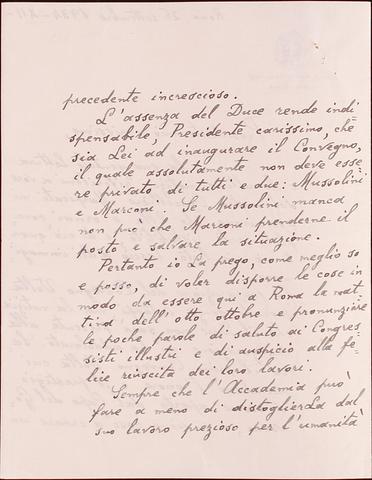 precedente increscioso.
L'assenza del Duce rende indi
spensabile, Presidente carissimo, che
sia Lei ad inaugurare il Convegno,
il quale assolutamente non deve esse
re privato di tutti e due: Mussolini
e Marconi. Se Mussolini manca
non può che Marconi prenderne il
posto e salvare la situazione.
Pertanto io La prego, come meglio so
e posso, di voler disporre le cose in
modo da essere qui a Roma la mat
tina dell'otto ottobre e pronunziare
le poche parole di saluto ai Congres
sisti illustri e di auspicio alla fe
lice riuscita dei loro lavori.
Sempre che l'Accademia può
fare a meno di distoglierLa dal
suo lavoro prezioso per l'umanità